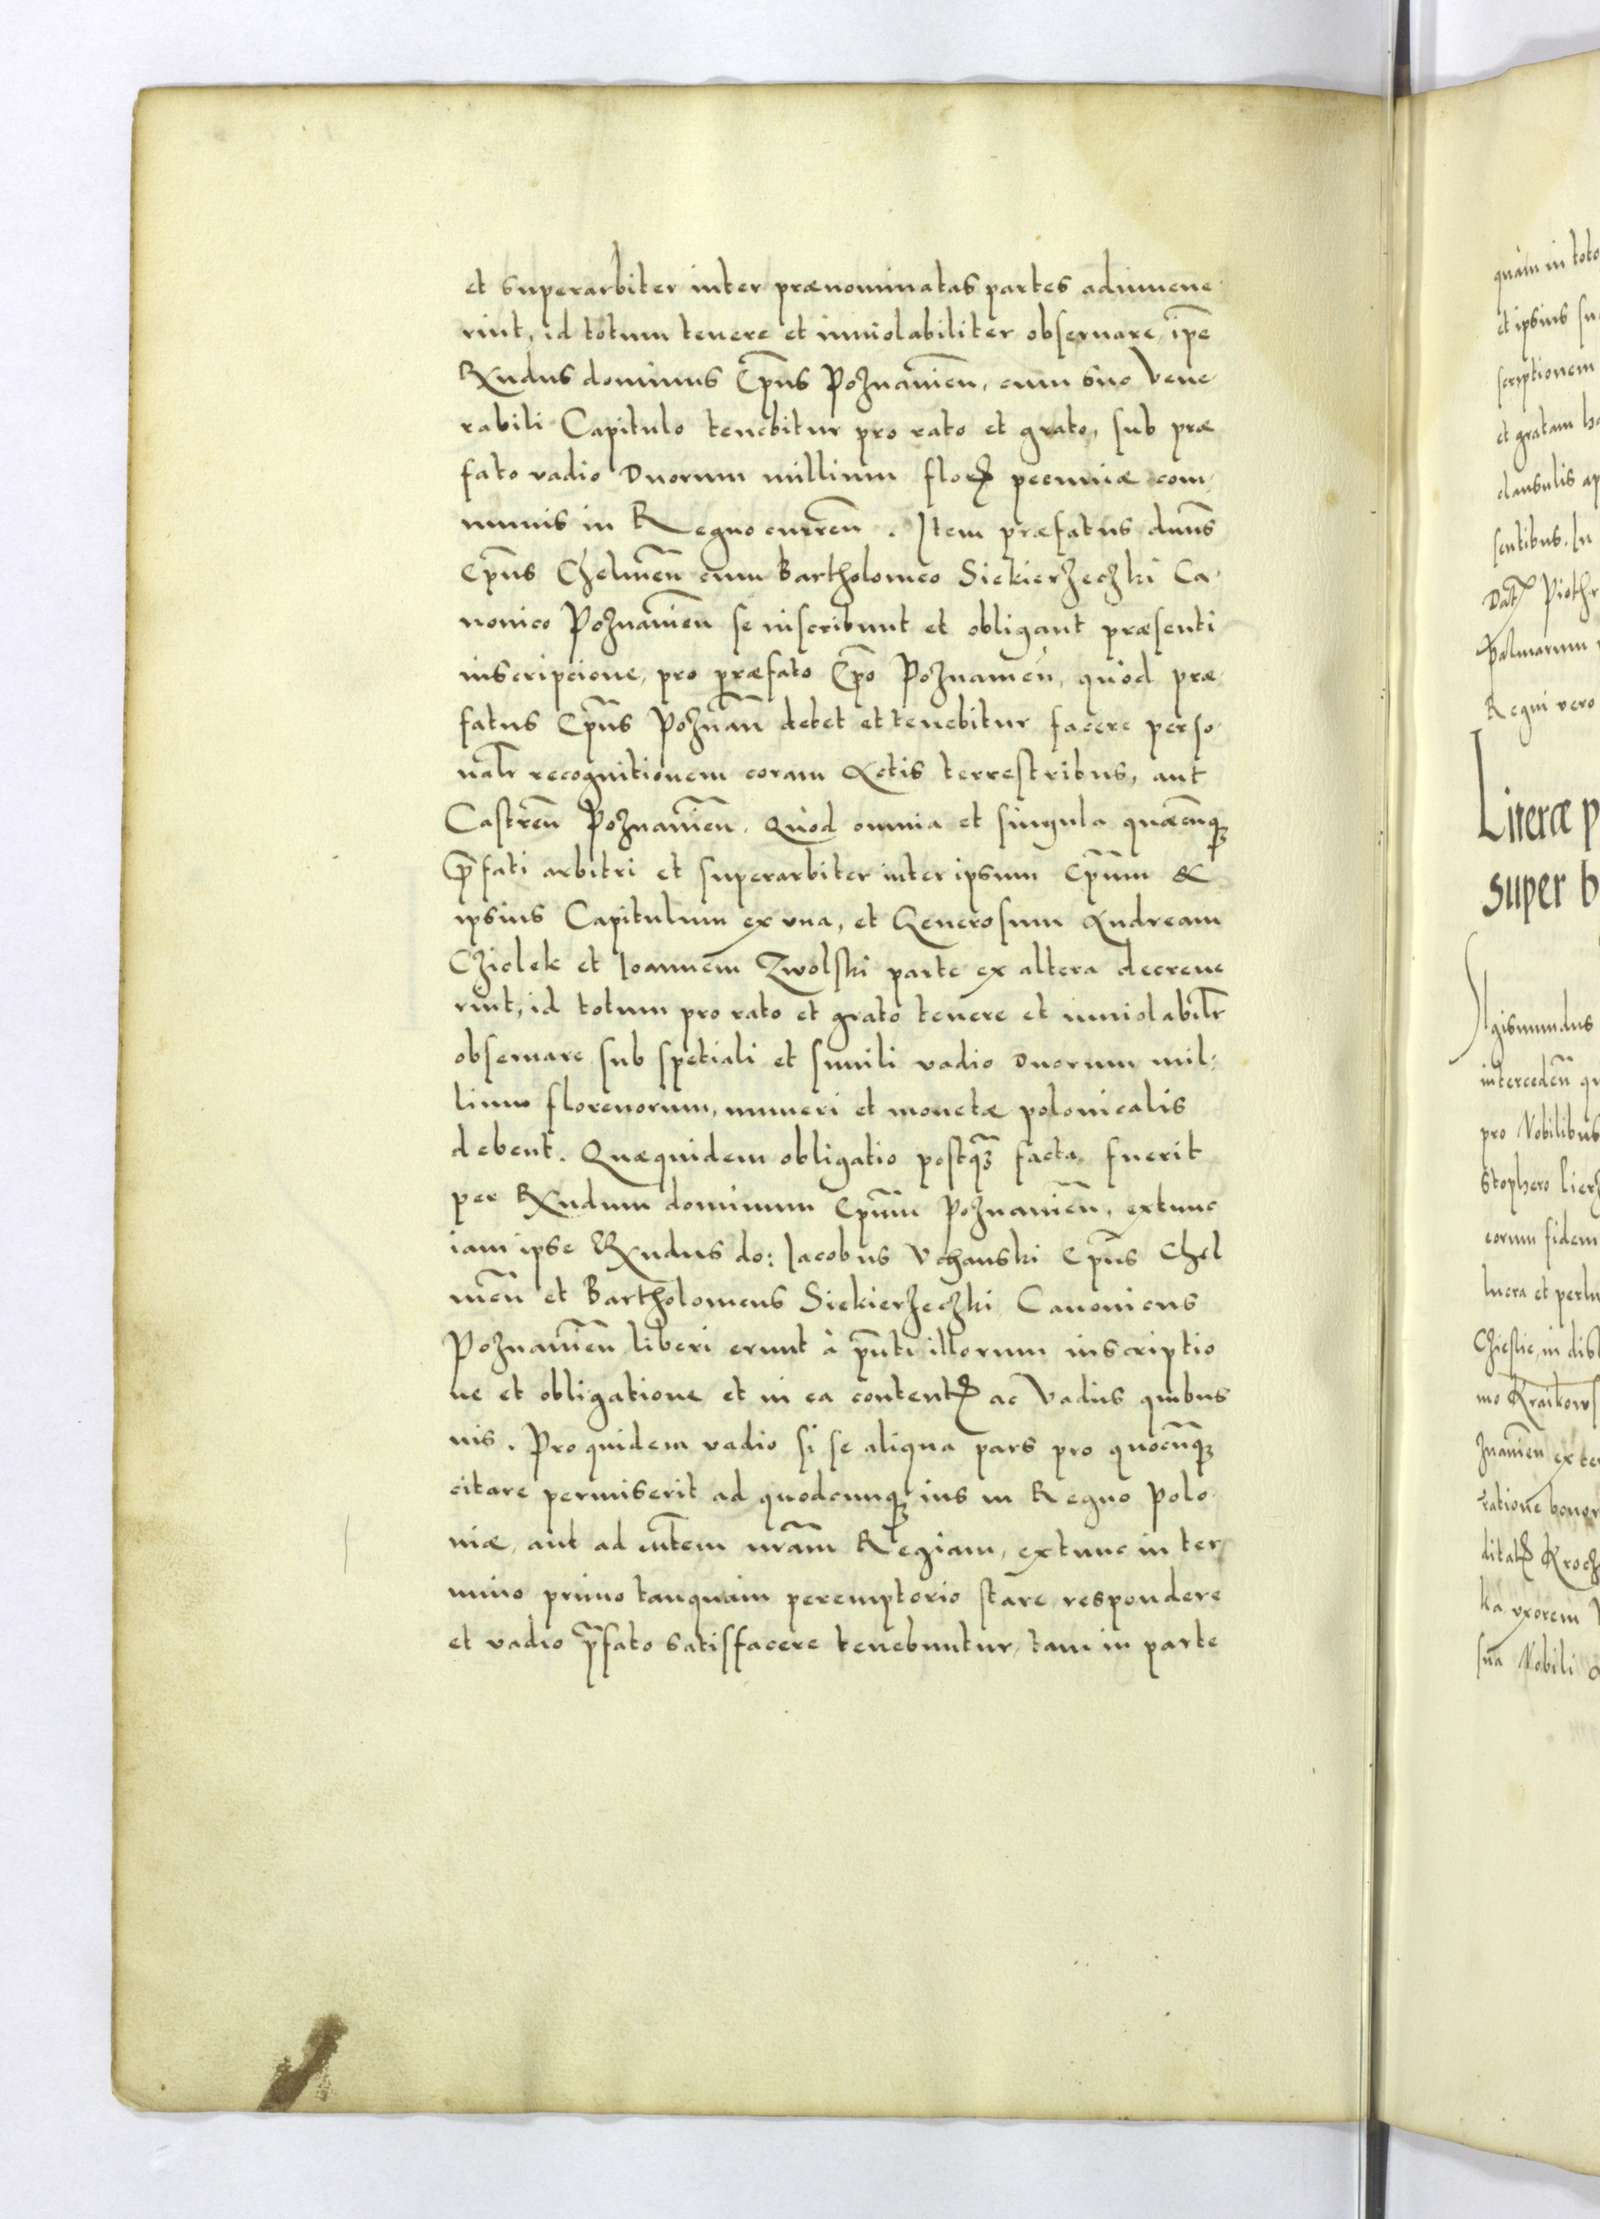 et superarbiter inter prænominatas partes adinuene
rint, id totum tenere et inuiolabiliter obseruare, ip̃e
Rx̃ndus dominus Ep̃us Poznanien̄, cum suo Vene
rabili Capitulo tenebitur pro rato et grato, sub præ
fato vadio Duorum millium floꝝ pecuniæ com
munis in Regno curren̄. Item præfatus dnũs
Ep̃us Chelmen̄ cum Bartholomeo Siekierzeczki Ca
nonico Poznanien̄ se inscribunt et obligant præsenti
inscripcione, pro præfato Ep̃o Poznanien̄, quòd præ
fatus Ep̃us Poznan̄ debet et tenebitur facere perso
nalr̃ recognitionem coram Actis terrestribus, aut
Castren̄ Poznanien̄. Quòd omnia et singula quæcunqꝫ
p̃fati arbitri et superarbiter inter ipsum Ep̃um &
ipsius Capitulum ex vna, et Generosum Andream
Cziolek et Ioannem Zwolski parte ex altera decreue
rint, id totum pro rato et grato tenere et inuiolabilr̃
obseruare sub spetiali et simili vadio Duorum mil
lium florenorum, numeri et monetæ polonicalis
debent. Quæquidem obligatio postqꝫ̃ facta fuerit
per Rx̃ndum dominum Ep̃um Poznanien̄, extunc
iam ipse Rx̃ndus do: Iacobus Vchanski Ep̃us Chel
men̄ et Bartholomeus Siekierzeczki Canonicus
Poznanien̄ liberi erunt à p̃nti illorum inscriptio
ne et obligatione et in ea contentꝭ ac Vadiis quibus
uis. Pro quidem vadio si se aliqua pars pro quocũqꝫ
citare permiserit ad quodcunqꝫ ius in Regno Polo
niæ, aut ad m̃tem nrãm Regiam, extunc in ter
mino primo tanquam peremptorio stare respondere
et vadio p̃fato satisfacere tenebuntur, tam in parte
quàm in toto
et ipsius
scriptionem
et gratam
clausulis
sentibus. In
Datꝭ
Palmarum
Regni vero
Literæ
super
Sigismundus
interceden̄
pro Nobilibus
stophero
eorum fidem
lucra et
in
mo
znanien̄
ratione
ditatꝭ
ka vxorem
sua Nobili